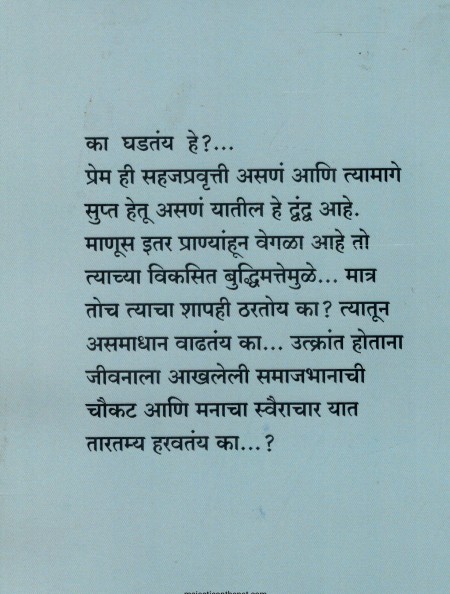 का घडतंय हे?...
प्रेम ही सहजप्रवृत्ती असणं आणि त्यामागे
सुप्त हेतू असणं यातील हे द्वंद्व आहे.
माणूस इतर प्राण्यांहून वेगळा आहे तो
त्याच्या विकसित बुद्धिमत्तेमुळे... मात्र
तोच त्याचा शापही ठरतोय का? त्यातून
असमाधान वाढतंय का... उत्क्रांत होताना
जीवनाला आखलेली समाजभानाची
चौकट आणि मनाचा स्वैराचार यात
तारतम्य हरवतंय का...?